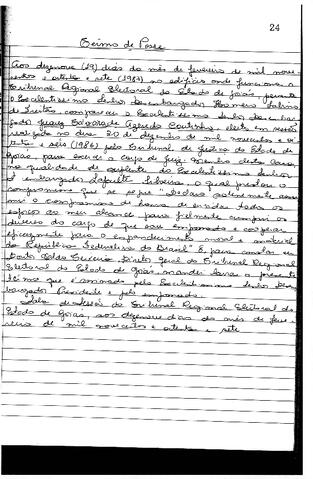 24
Termo de Posse
Aos dezenove (19) dias do mês de fevereiro de mil nove
centos e oitenta e sete (1987) no edifício onde funciona o
Tribunal Regional Eleitoral do Estado de Goiás, perante
o Excelentíssimo Senhor Desembargador Homero Sabino
de Freitas, compareceu o Excelentíssimo Senhor Desembar
gador Juarez Távora de Azeredo Coutinho, eleito em sessão
realizada no dia 20 de dezembro de mil novecentos e oi
tenta e seis (1986) pelo Tribunal de Justiça do Estado de
Goiás, para exercer o cargo de Juiz Membro desta Casa,
na qualidade de suplente do Excelentíssimo Senhor
Desembargador Lafaiete Silveira o qual prestou o
compromisso que se segue: "Declaro solenemente assu
mir o compromisso de honra de envidar todos os
esforços ao meu alcance para fielmente cumprir os
deveres do cargo de que sou empossado e cooperar
eficazmente para o engrandecimento moral e material
da República Federativa do Brasil". E, para constar eu
Diretor Geral do Tribunal Regional
Eleitoral do Estado de Goiás, mandei lavrar o presente
termo que é assinado pelo Excelentíssimo Senhor Desem
bargador Presidente e pelo empossado.
Sala de sessões do Tribunal Regional Eleitoral do
Estado de Goiás, aos dezenove dias do mês de feve
reiro de mil novecentos e oitenta e sete